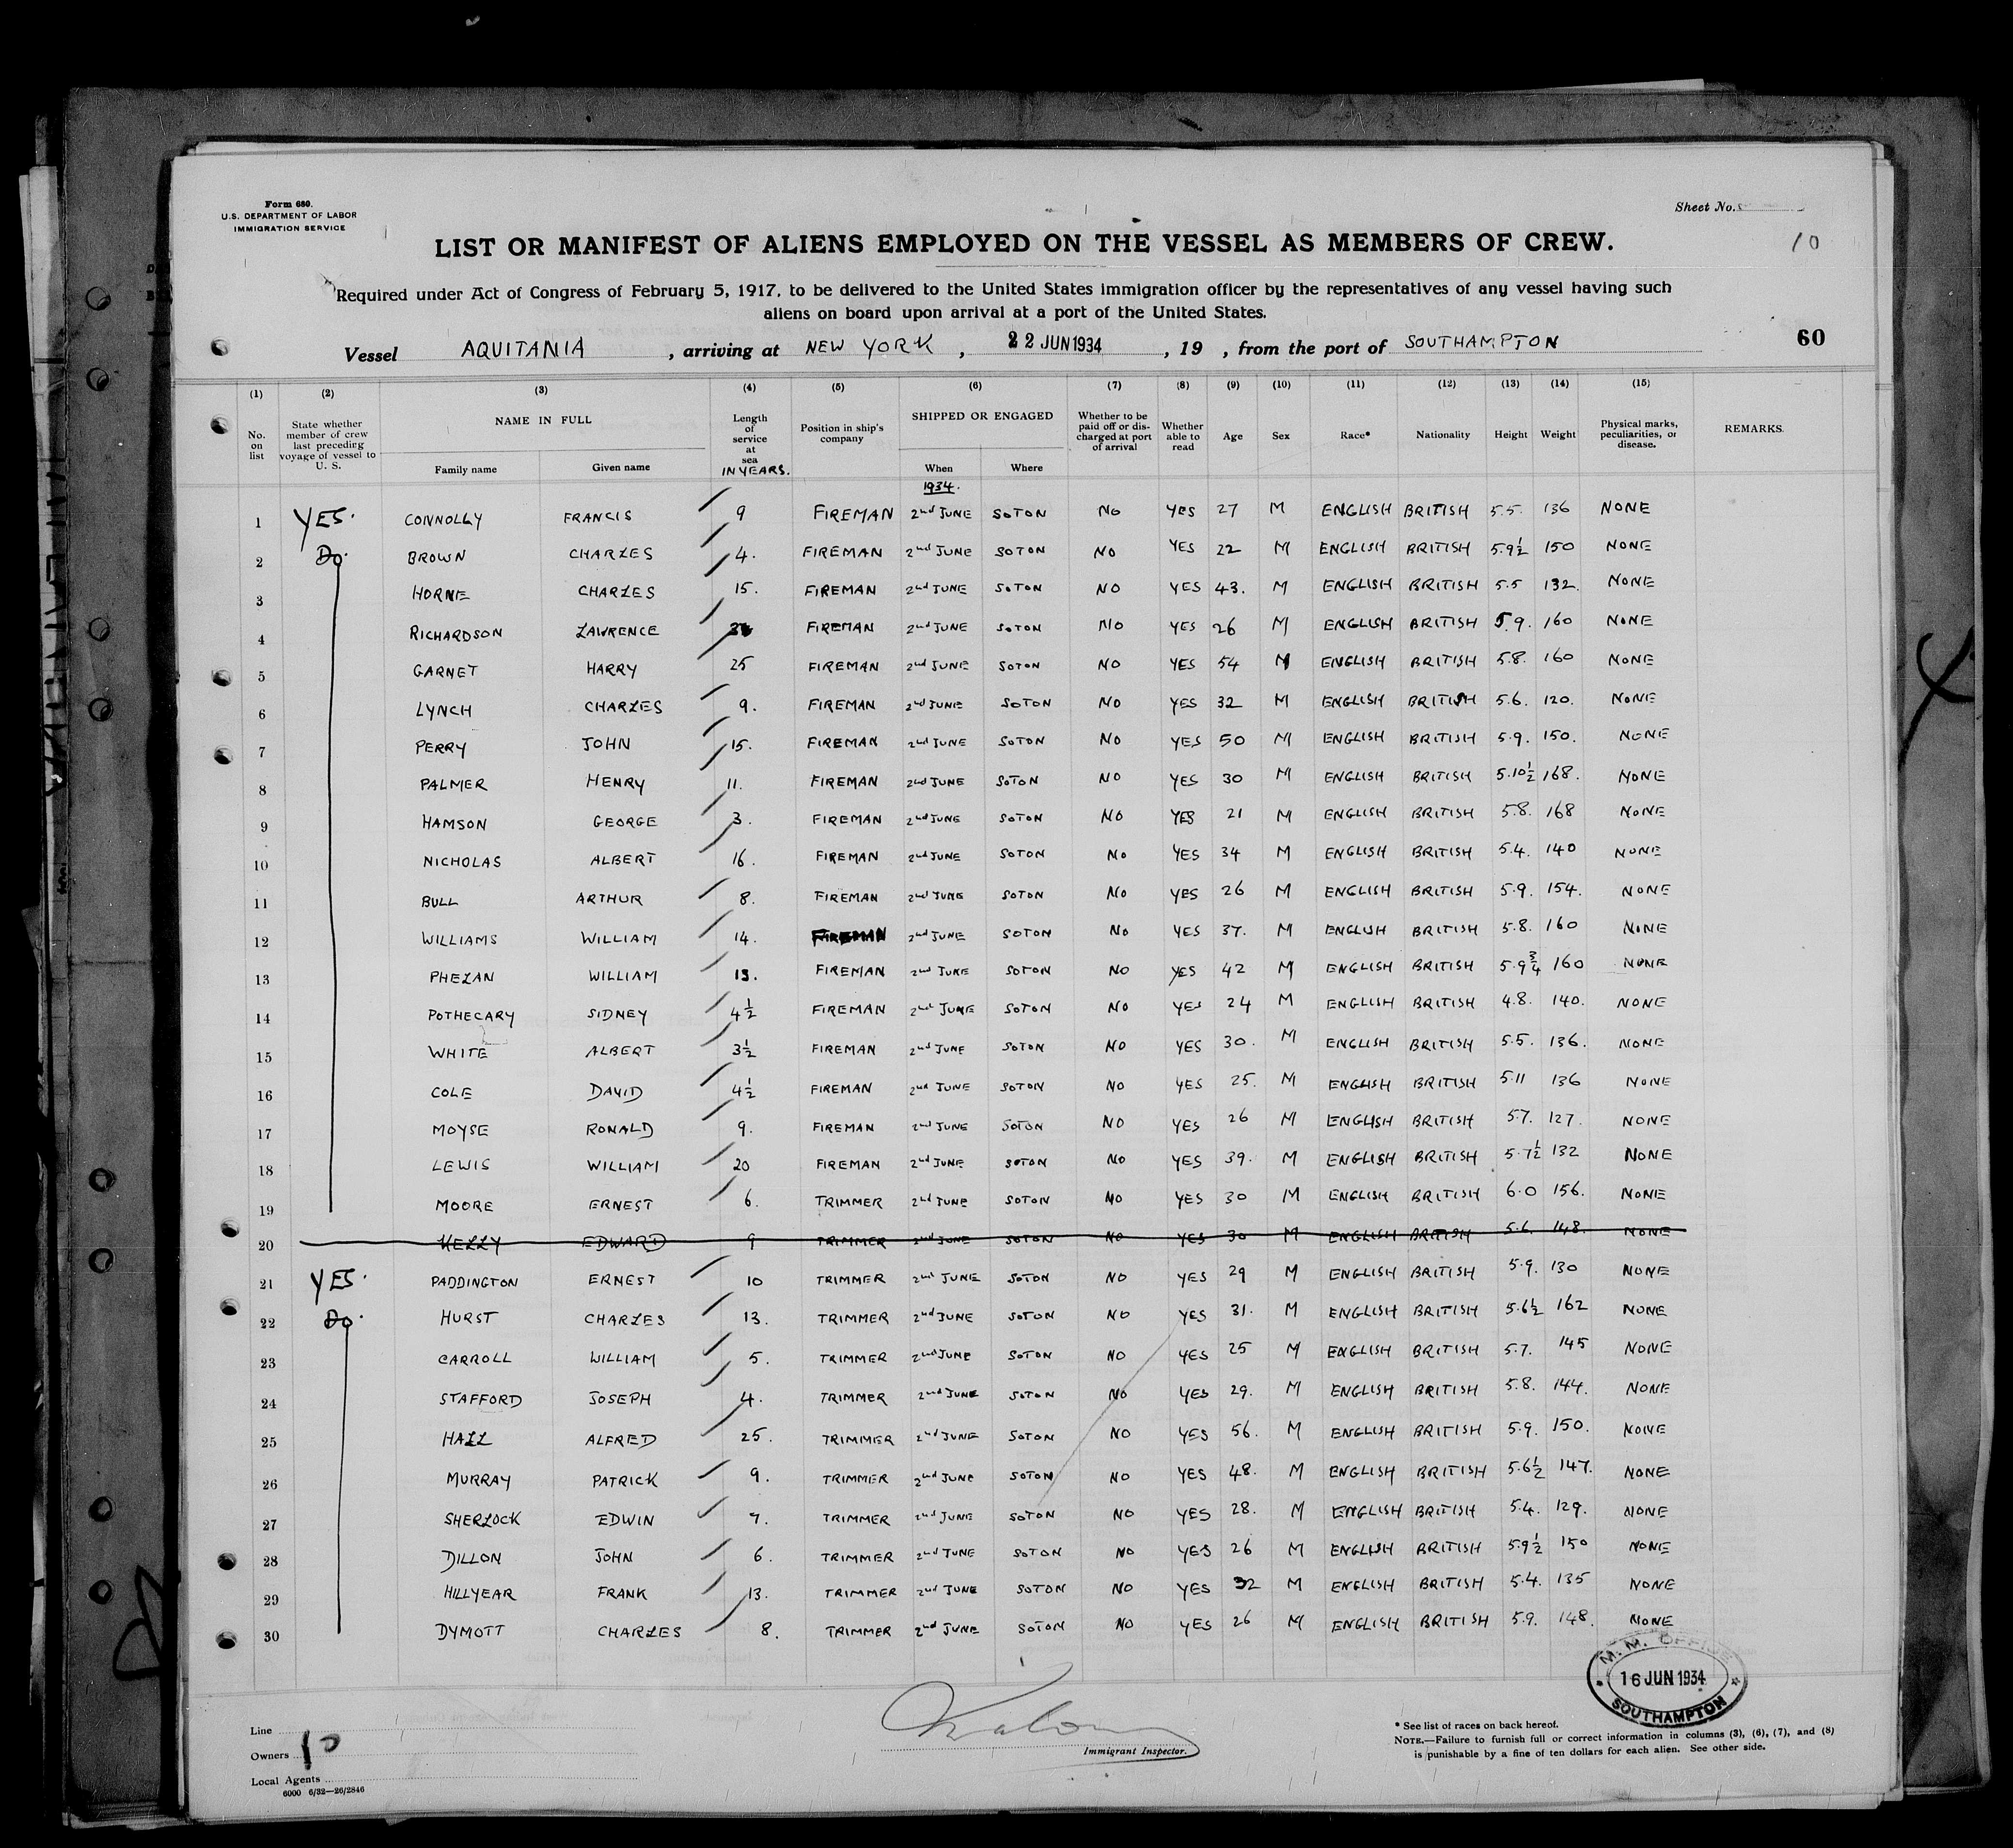 Form 680.
U.S. DEPARTMENT OF LABOR
IMMIGRATION SERVICE
Sheet No.
10
LIST OR MANIFEST OF ALIENS EMPLOYED ON THE VESSEL AS MEMBERS OF CREW.
Required under Act of Congress of February 5, 1917, to be delivered to the United States immigration officer by the representatives of any vessel having such
aliens on board upon arrival at a port of the United States.
Vessel AQUITANIA, arriving at NEW YORK, 22 JUN 1934, 19 , from the port of SOUTHAMPTON 60
(1) (2) (3) (4) (5) (6) (7) (8) (9) (10) (11) (12) (13) (14) (15)
No. on list State whether member of crew last preceding voyage of vessel to U. S. NAME IN FULL Family name Given name Length of service at sea IN YEARS. Position in ship's company SHIPPED OR ENGAGED When Where Whether to be paid off or discharged at port of arrival Whether able to read Age Sex Race* Nationality Height Weight Physical marks, peculiarities, or disease. REMARKS.
1934.
1 YES. CONNOLLY FRANCIS 9 FIREMAN 2nd JUNE SOTON NO YES 27 M ENGLISH BRITISH 5.5. 136 NONE
2 Do. BROWN CHARLES 4. FIREMAN 2nd JUNE SOTON NO YES 22 M ENGLISH BRITISH 5.9½ 150 NONE
3 HORNE CHARLES 15. FIREMAN 2nd JUNE SOTON NO YES 43. M ENGLISH BRITISH 5.5 132. NONE
4 RICHARDSON LAWRENCE FIREMAN 2nd JUNE SOTON NO YES 26 M ENGLISH BRITISH 5.9. 160 NONE
5 GARNET HARRY 25 FIREMAN 2nd JUNE SOTON NO YES 54 M ENGLISH BRITISH 5.8. 160 NONE
6 LYNCH CHARLES 9. FIREMAN 2nd JUNE SOTON NO YES 32 M ENGLISH BRITISH 5.6. 120. NONE
7 PERRY JOHN 15. FIREMAN 2nd JUNE SOTON NO YES 50 M ENGLISH BRITISH 5.9. 150. NONE
8 PALMER HENRY 11. FIREMAN 2nd JUNE SOTON NO YES 30 M ENGLISH BRITISH 5.10½ 168. NONE
9 HAMSON GEORGE 3. FIREMAN 2nd JUNE SOTON NO YES 21 M ENGLISH BRITISH 5.8. 168 NONE
10 NICHOLAS ALBERT 16. FIREMAN 2nd JUNE SOTON NO YES 34 M ENGLISH BRITISH 5.4. 140 NONE
11 BULL ARTHUR 8. FIREMAN 2nd JUNE SOTON NO YES 26 M ENGLISH BRITISH 5.9. 154. NONE
12 WILLIAMS WILLIAM 14. FIREMAN 2nd JUNE SOTON NO YES 37. M ENGLISH BRITISH 5.8. 160 NONE
13 PHELAN WILLIAM 13. FIREMAN 2nd JUNE SOTON NO YES 42 M ENGLISH BRITISH 5.9¾ 160 NONE
14 POTHECARY SIDNEY 4½ FIREMAN 2nd JUNE SOTON NO YES 24 M ENGLISH BRITISH 4.8. 140. NONE
15 WHITE ALBERT 3½ FIREMAN 2nd JUNE SOTON NO YES 30. M ENGLISH BRITISH 5.5. 136. NONE
16 COLE DAVID 4½ FIREMAN 2nd JUNE SOTON NO YES 25. M ENGLISH BRITISH 5.11 136 NONE
17 MOYSE RONALD 9. FIREMAN 2nd JUNE SOTON NO YES 26 M ENGLISH BRITISH 5.7. 127. NONE
18 LEWIS WILLIAM 20 FIREMAN 2nd JUNE SOTON NO YES 39. M ENGLISH BRITISH 5.7½ 132 NONE
19 MOORE ERNEST 6. TRIMMER 2nd JUNE SOTON NO YES 30 M ENGLISH BRITISH 6.0 156. NONE
20 KELLY EDWARD 9 TRIMMER 2nd JUNE SOTON NO YES 30 M ENGLISH BRITISH 5.6. 148. NONE
21 YES. PADDINGTON ERNEST 10 TRIMMER 2nd JUNE SOTON NO YES 29 M ENGLISH BRITISH 5.9. 130 NONE
22 Do. HURST CHARLES 13. TRIMMER 2nd JUNE SOTON NO YES 31. M ENGLISH BRITISH 5.6½ 162 NONE
23 CARROLL WILLIAM 5. TRIMMER 2nd JUNE SOTON NO YES 25 M ENGLISH BRITISH 5.7. 145 NONE
24 STAFFORD JOSEPH 4. TRIMMER 2nd JUNE SOTON NO YES 29. M ENGLISH BRITISH 5.8. 144. NONE
25 HALL ALFRED 25. TRIMMER 2nd JUNE SOTON NO YES 56. M ENGLISH BRITISH 5.9. 150. NONE
26 MURRAY PATRICK 9. TRIMMER 2nd JUNE SOTON NO YES 48. M ENGLISH BRITISH 5.6½ 147. NONE
27 SHERLOCK EDWIN 7. TRIMMER 2nd JUNE SOTON NO YES 28. M ENGLISH BRITISH 5.4. 129. NONE
28 DILLON JOHN 6. TRIMMER 2nd JUNE SOTON NO YES 26 M ENGLISH BRITISH 5.9½ 150 NONE
29 HILLYEAR FRANK 13. TRIMMER 2nd JUNE SOTON NO YES 32 M ENGLISH BRITISH 5.4. 135 NONE
30 DYMOTT CHARLES 8. TRIMMER 2nd JUNE SOTON NO YES 26 M ENGLISH BRITISH 5.9. 148. NONE
M. M. OFFICE
16 JUN 1934
SOUTHAMPTON
Line
Owners 10
Local Agents
6000 6/32—26/2846
Immigrant Inspector.
* See list of races on back hereof.
NOTE.—Failure to furnish full or correct information in columns (3), (6), (7), and (8)
is punishable by a fine of ten dollars for each alien. See other side.